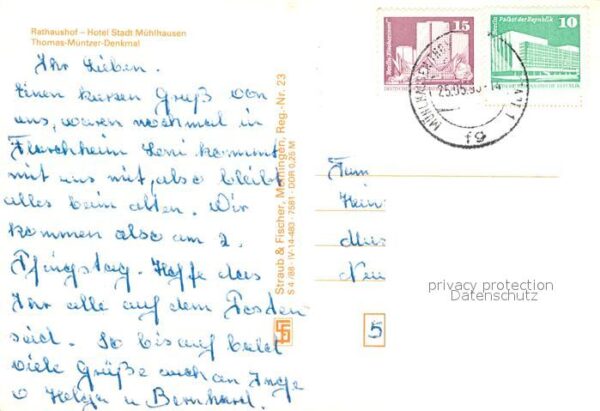 Rathaushof – Hotel Stadt Mühlhausen
Thomas-Müntzer-Denkmal
Ihr Lieben.
Einen kurzen Gruß von
uns, waren nochmal in
Flarchheim Leni kommt
mit uns mit, also bleibt
alles beim alten. Wir
kommen also am 2.
Pfingstag. Hoffe das
Ihr alle auf dem Posten
seid. So bis auf bald
viele Grüße auch an Inge
Helga u Bernhard.
Straub & Fischer, Meiningen, Reg.-Nr. 23
S 4/88 · IV-14-483 · 7581 · DDR 0,25 M
15
Berlin, Fischerinsel
10
Berlin Palast der Republik
25.05.90-14
1
fg
Fam
Hein
Neu
privacy protection
Datenschutz
5